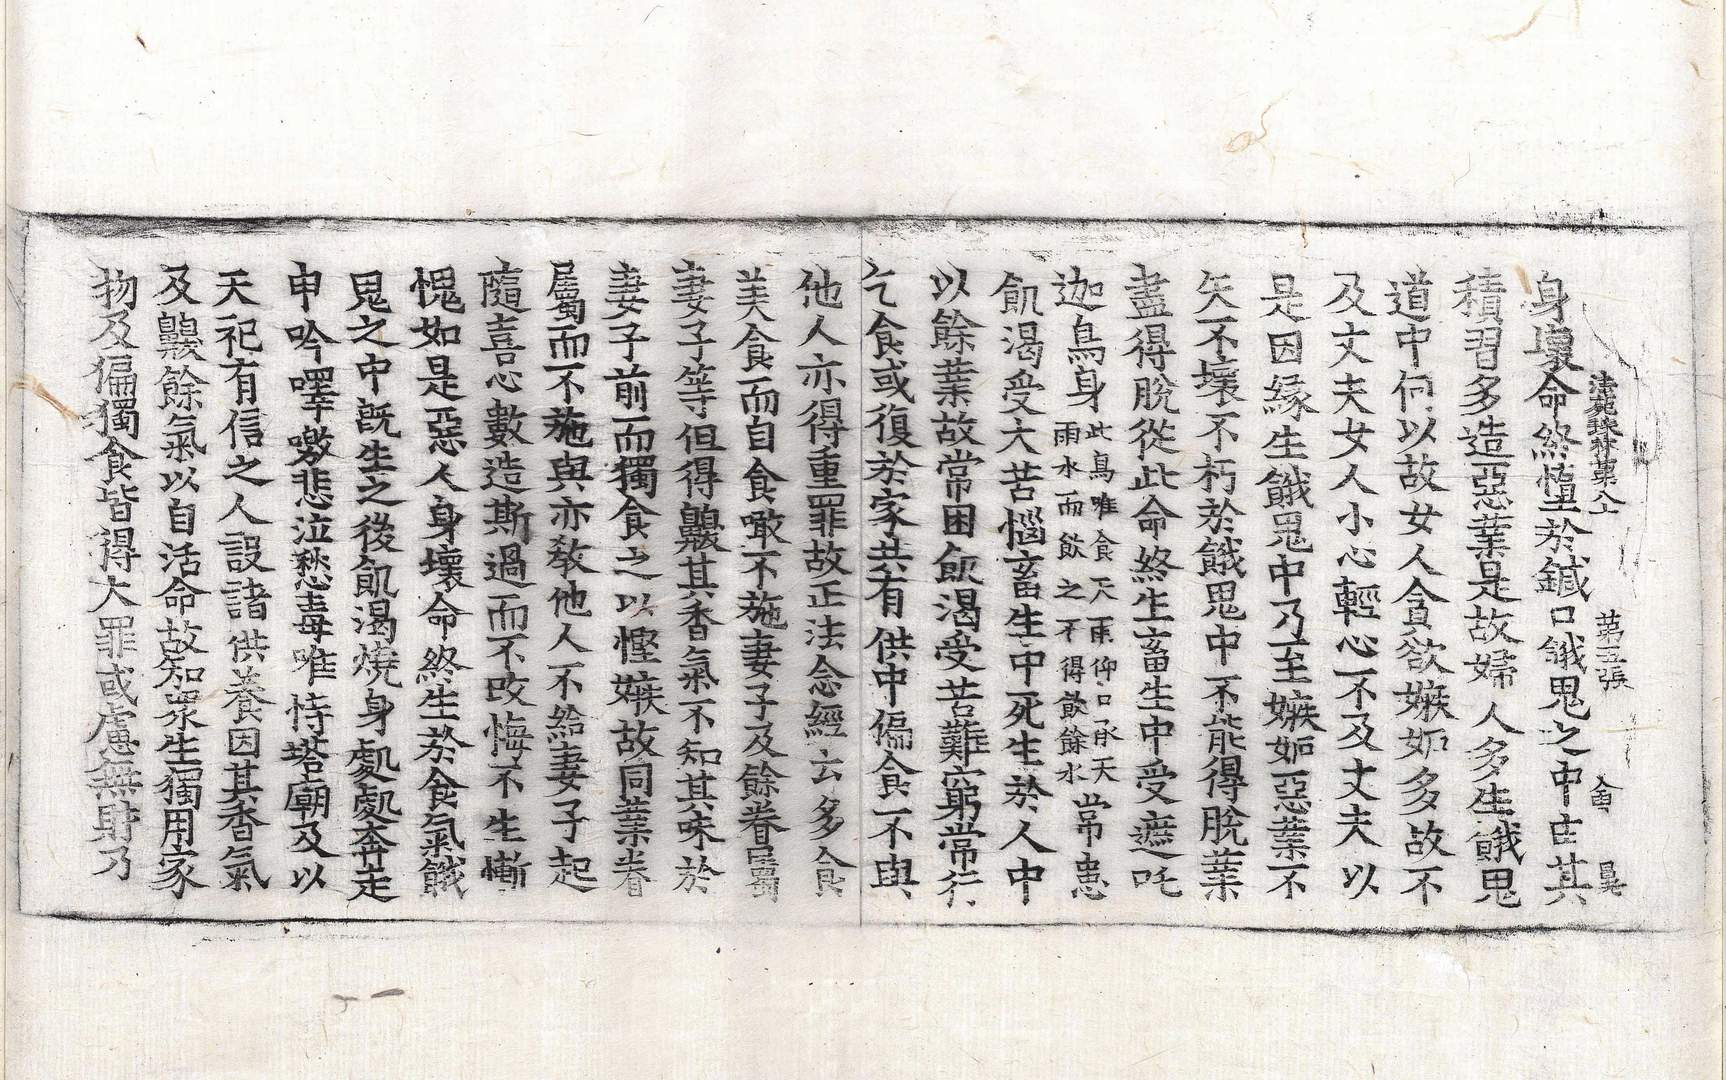 法苑珠林第八 第五張 會 昊
身壞命終墮於鍼口餓鬼之中由其
積習多造惡業是故婦人多生餓鬼
道中何以故女人貪欲嫉妬多故不
及丈夫女人小心輕心不及丈夫以
是因緣生餓鬼中乃至嫉妬惡業不
失不壞不朽於餓鬼中不能得脫業
盡得脫從此命終生畜生中受遮吒
迦鳥身此鳥唯食天雨仰口承天雨水而飲之不得飲餘水常患
飢渴受大苦惱畜生中死生於人中
以餘業故常困飢渴受苦難窮常行
乞食或復於家共有供中偏食不與
他人亦得重罪故正法念經云多食
美食而自食噉不施妻子及餘眷屬
妻子等但得齅其香氣不知其味於
妻子前而獨食之以慳嫉故同業眷
屬而不施與亦教他人不給妻子起
隨喜心數造斯過而不改悔不生慚
愧如是惡人身壞命終生於食氣餓
鬼之中旣生之後飢渴燒身處處奔走
申吟嘷噭悲泣愁毒唯恃塔廟及以
天祀有信之人設諸供養因其香氣
及齅餘氣以自活命故知眾生獨用家
物及偏獨食皆得大罪或慮無財乃